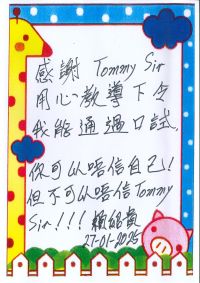 感謝 Tommy Sir
用心教導下令
我能通過口試,
你可以唔信自己!
但不可以唔信Tommy
Sir!!! 賴紹
27-01-2025